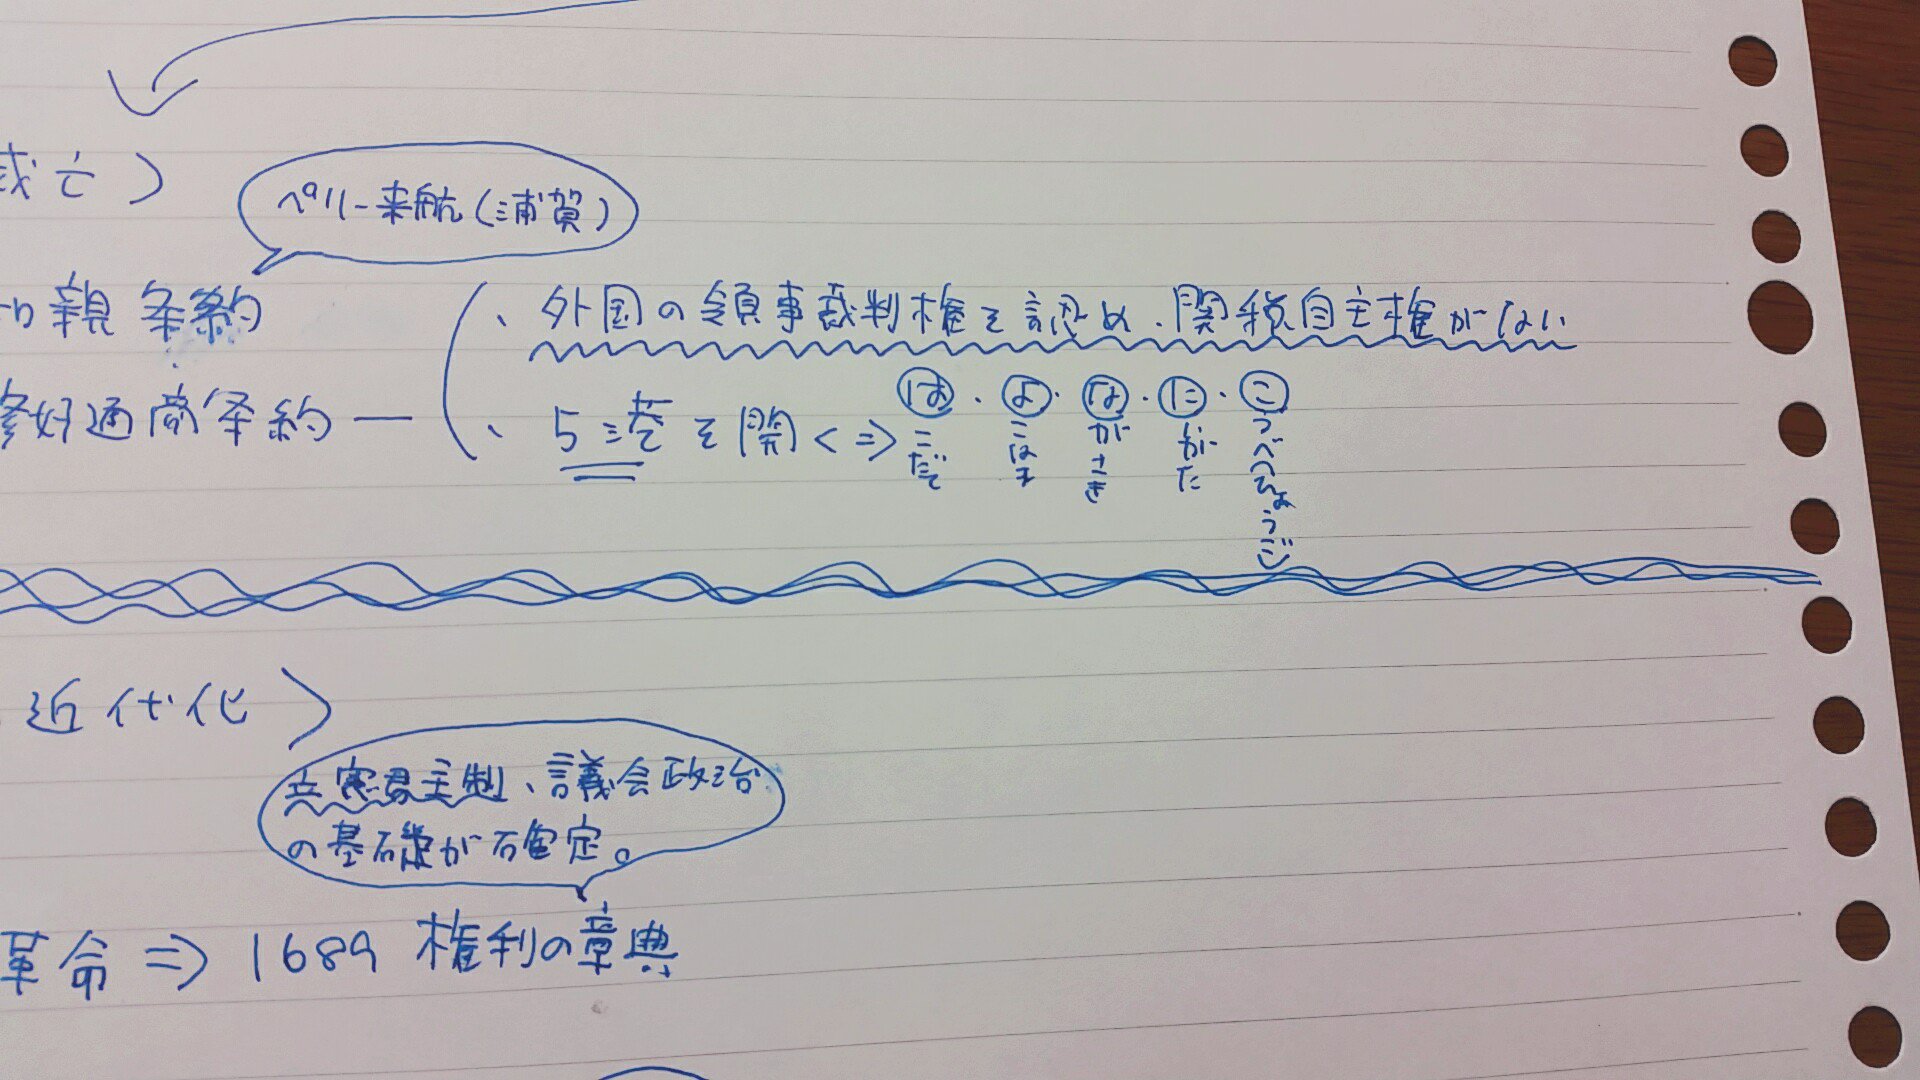 滅亡〉
ペリー来航(浦賀)
和親条約
、外国の領事裁判権を認め、関税自主権がない
修好通商条約ー
、5港を開く⇒はこだて・よこはま・ながさき・にいがた・こうべ(ひょうご)
近代化〉
立憲君主制、議会政治
の基礎が確定。
革命⇒1689 権利の章典